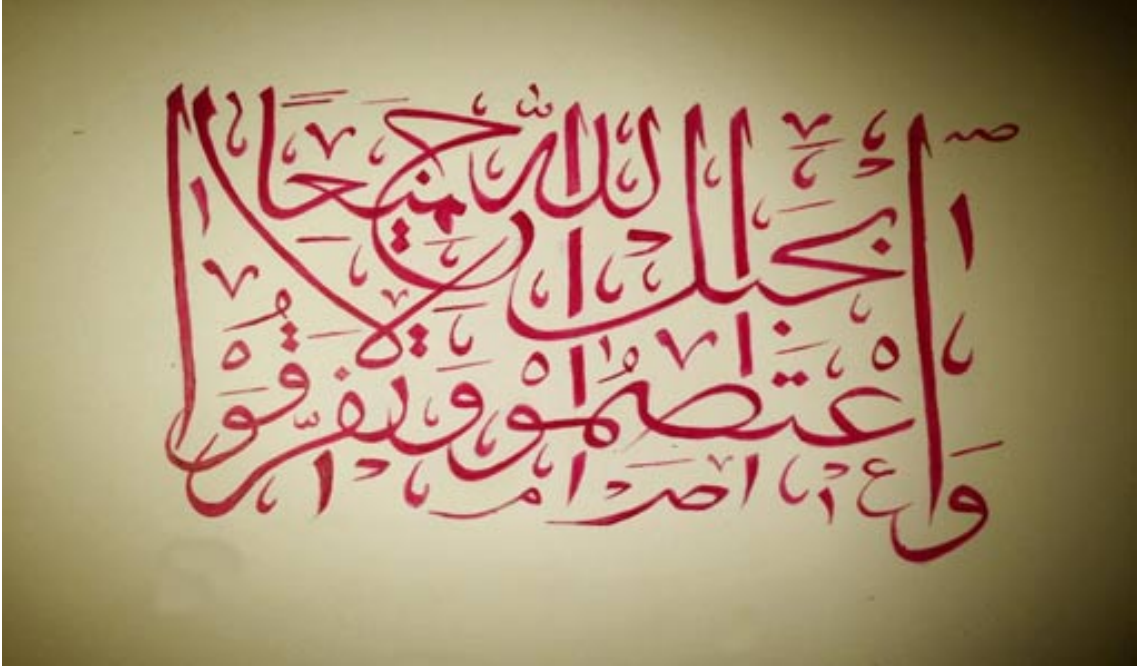 وَاعْتَصِمُوْا بِحَبْلِ اللّٰهِ جَمِيْعًا وَلَا تَفَرَّقُوْا